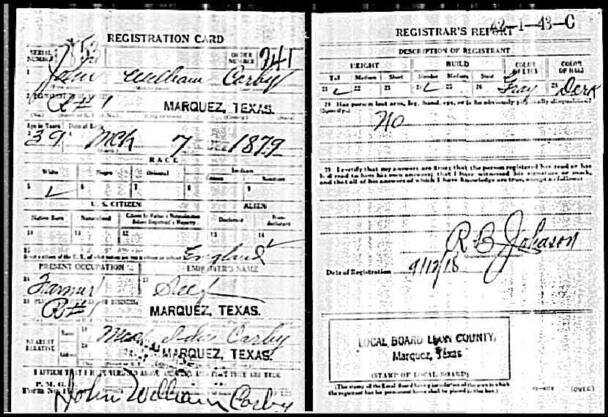 REGISTRATION CARD
SERIAL NUMBER
ORDER NUMBER 241
John William Carby
R#1 MARQUEZ, TEXAS.
Age in Years Date of Birth
39 Mch 7 1879
RACE
White Negro Oriental Indian
5 6 7
U. S. CITIZEN ALIEN
Native Born Naturalized Declarant
10 11 12 13 14
England
PRESENT OCCUPATION EMPLOYER'S NAME
Farmer Self
R#1 MARQUEZ, TEXAS.
NEAREST RELATIVE
Name Carby
MARQUEZ, TEXAS.
P. M. G. O.
Form No. 1
John William Carby
42-1-43-C
REGISTRAR'S REPORT
DESCRIPTION OF REGISTRANT
HEIGHT BUILD COLOR OF EYES COLOR OF HAIR
Tall Medium Short Slender Medium Stout
21 22 23 24 25 26 27 Gray 28 Derk
29 Has person lost arm, leg, hand, eye, or is he obviously physically disqualified?
(Specify.)
No
30 I certify that my answers are true; that the person registered has read or has
had read to him his own answers; that I have witnessed his signature or mark,
and that all of his answers of which I have knowledge are true, except as follows:
R B Johnson
Date of Registration 9/12/18
LOCAL BOARD LEON COUNTY,
Marquez, Texas
(STAMP OF LOCAL BOARD)
(The stamp of the Local Board having jurisdiction of the area in which
the registrant has his permanent home shall be placed in this box.)
(OVER)